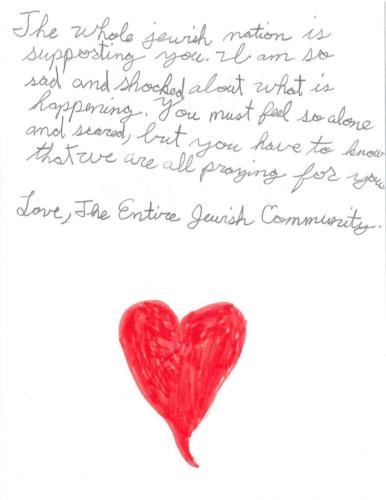 The whole jewish nation is
supporting you. I am so
sad and shocked about what is
happening. You must feel so alone
and scared, but you have to know
that we are all praying for you
Love, The Entire Jewish Community.